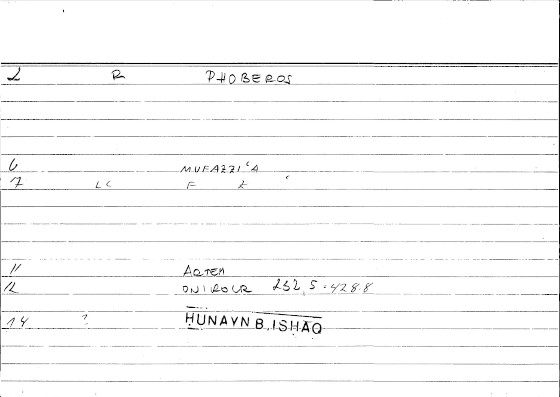 2 R PHOBEROS
6 MUFAZZI'A
7 LC F Z '
11 ARTEM
12 ONIROCR 232, 5 · 428.8
14 ? ḤUNAYN B. ISḤĀQ